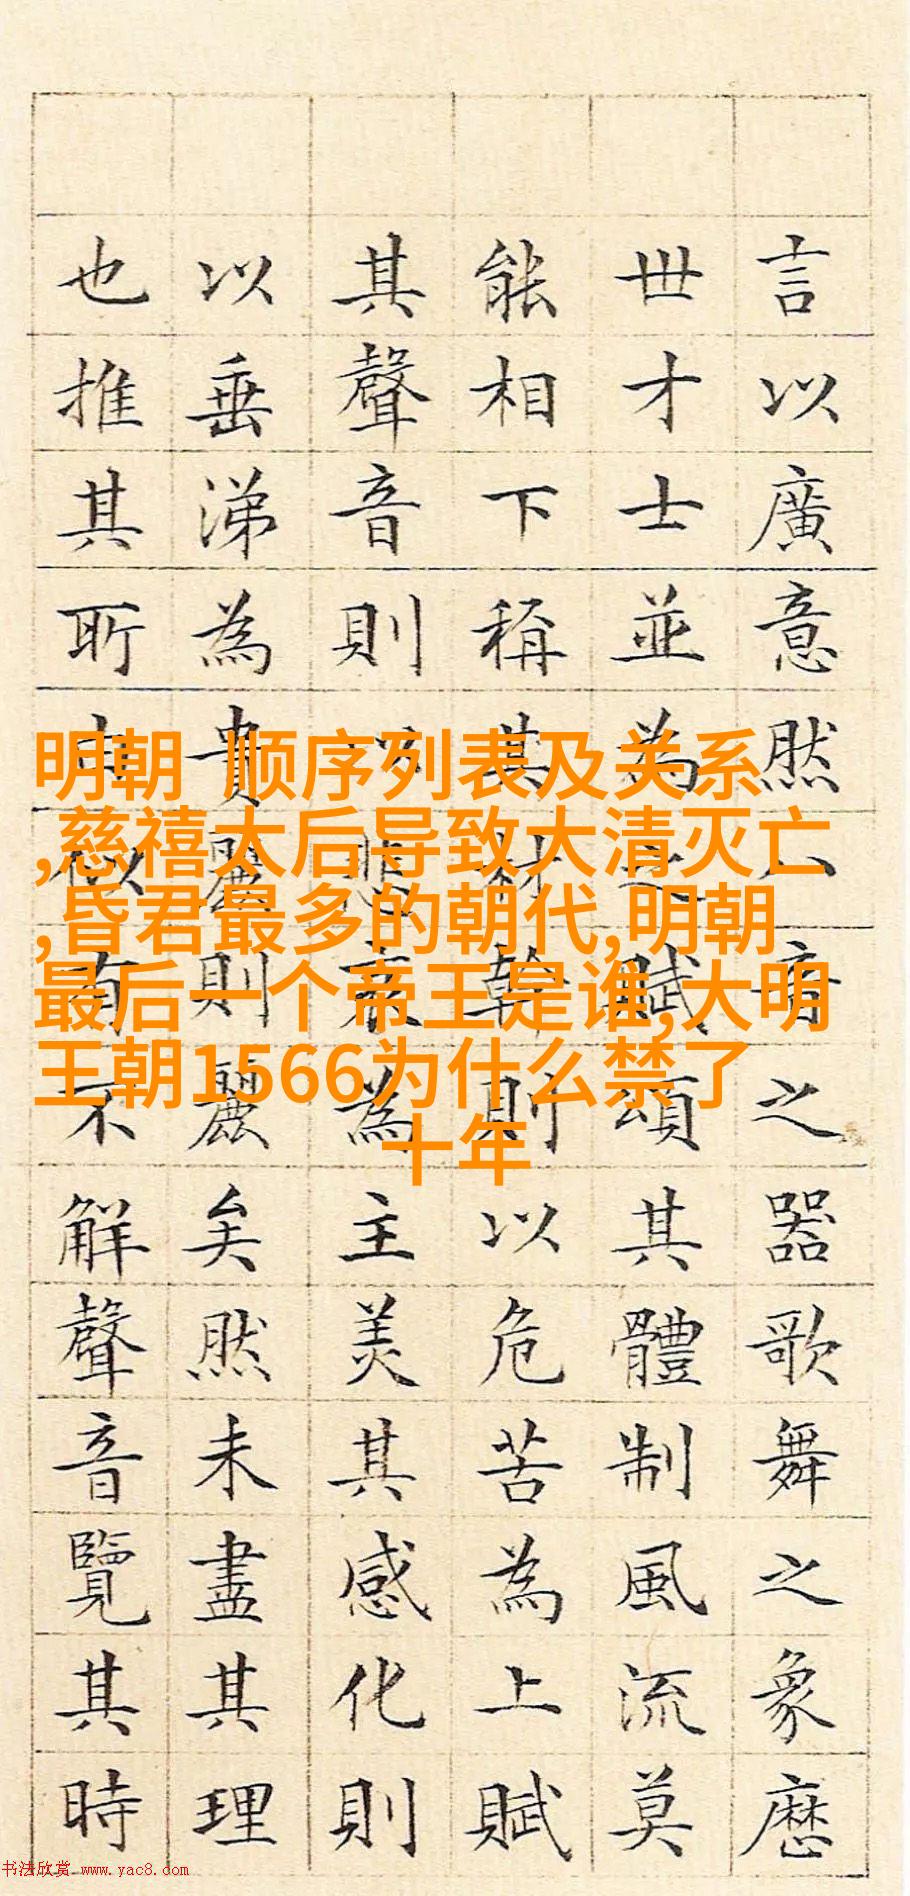 言以廣意然八音之器歌舞之象歷
世才士並為之賦頌其體制風流莫
能相下稱其材幹則以危苦為上賦
其聲音則以悲哀為主美其感化則
以垂涕為貴麗則麗矣然未盡其理
也推其所由似有不解聲音覽其時
明朝 顺序列表及关系
,慈禧太后导致大清灭亡
,昏君最多的朝代,明朝
最后一个帝王是谁,大明
王朝1566为什么禁了
十年
书法欣赏 www.yac8.com